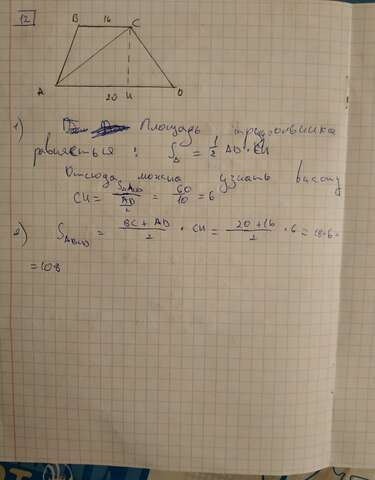 12
B 16 C
A 20 H D
1) Площадь треугольника
равняется : S△ = 1/2 AD · CH
Отсюда можно узнать высоту
CH = S△ACD / (AD/2) = 60/10 = 6
2) SABCD = (BC + AD)/2 · CH = (20+16)/2 · 6 = 18·6=
=108